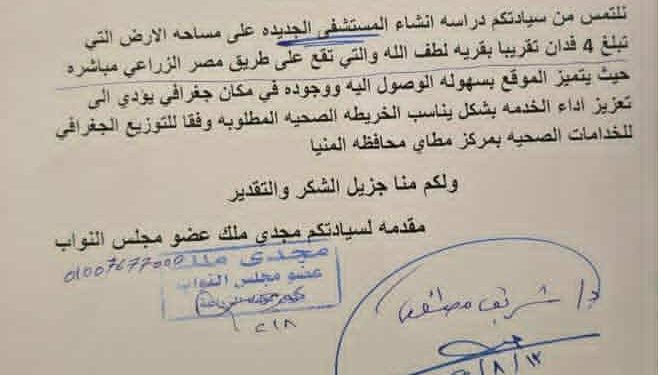 نلتمس من سيادتكم دراسه انشاء المستشفى الجديده على مساحه الارض التي
تبلغ 4 فدان تقريبا بقريه لطف الله والتي تقع على طريق مصر الزراعي مباشره
حيث يتميز الموقع بسهوله الوصول اليه ووجوده في مكان جغرافي يؤدي الى
تعزيز اداء الخدمه بشكل يناسب الخريطه الصحيه المطلوبه وفقا للتوزيع الجغرافي
للخدامات الصحيه بمركز مطاي محافظه المنيا
ولكم منا جزيل الشكر والتقدير
مقدمه لسيادتكم مجدي ملك عضو مجلس النواب
مجدى ملك
عضو مجلس النواب
د/ شريف مصطفى